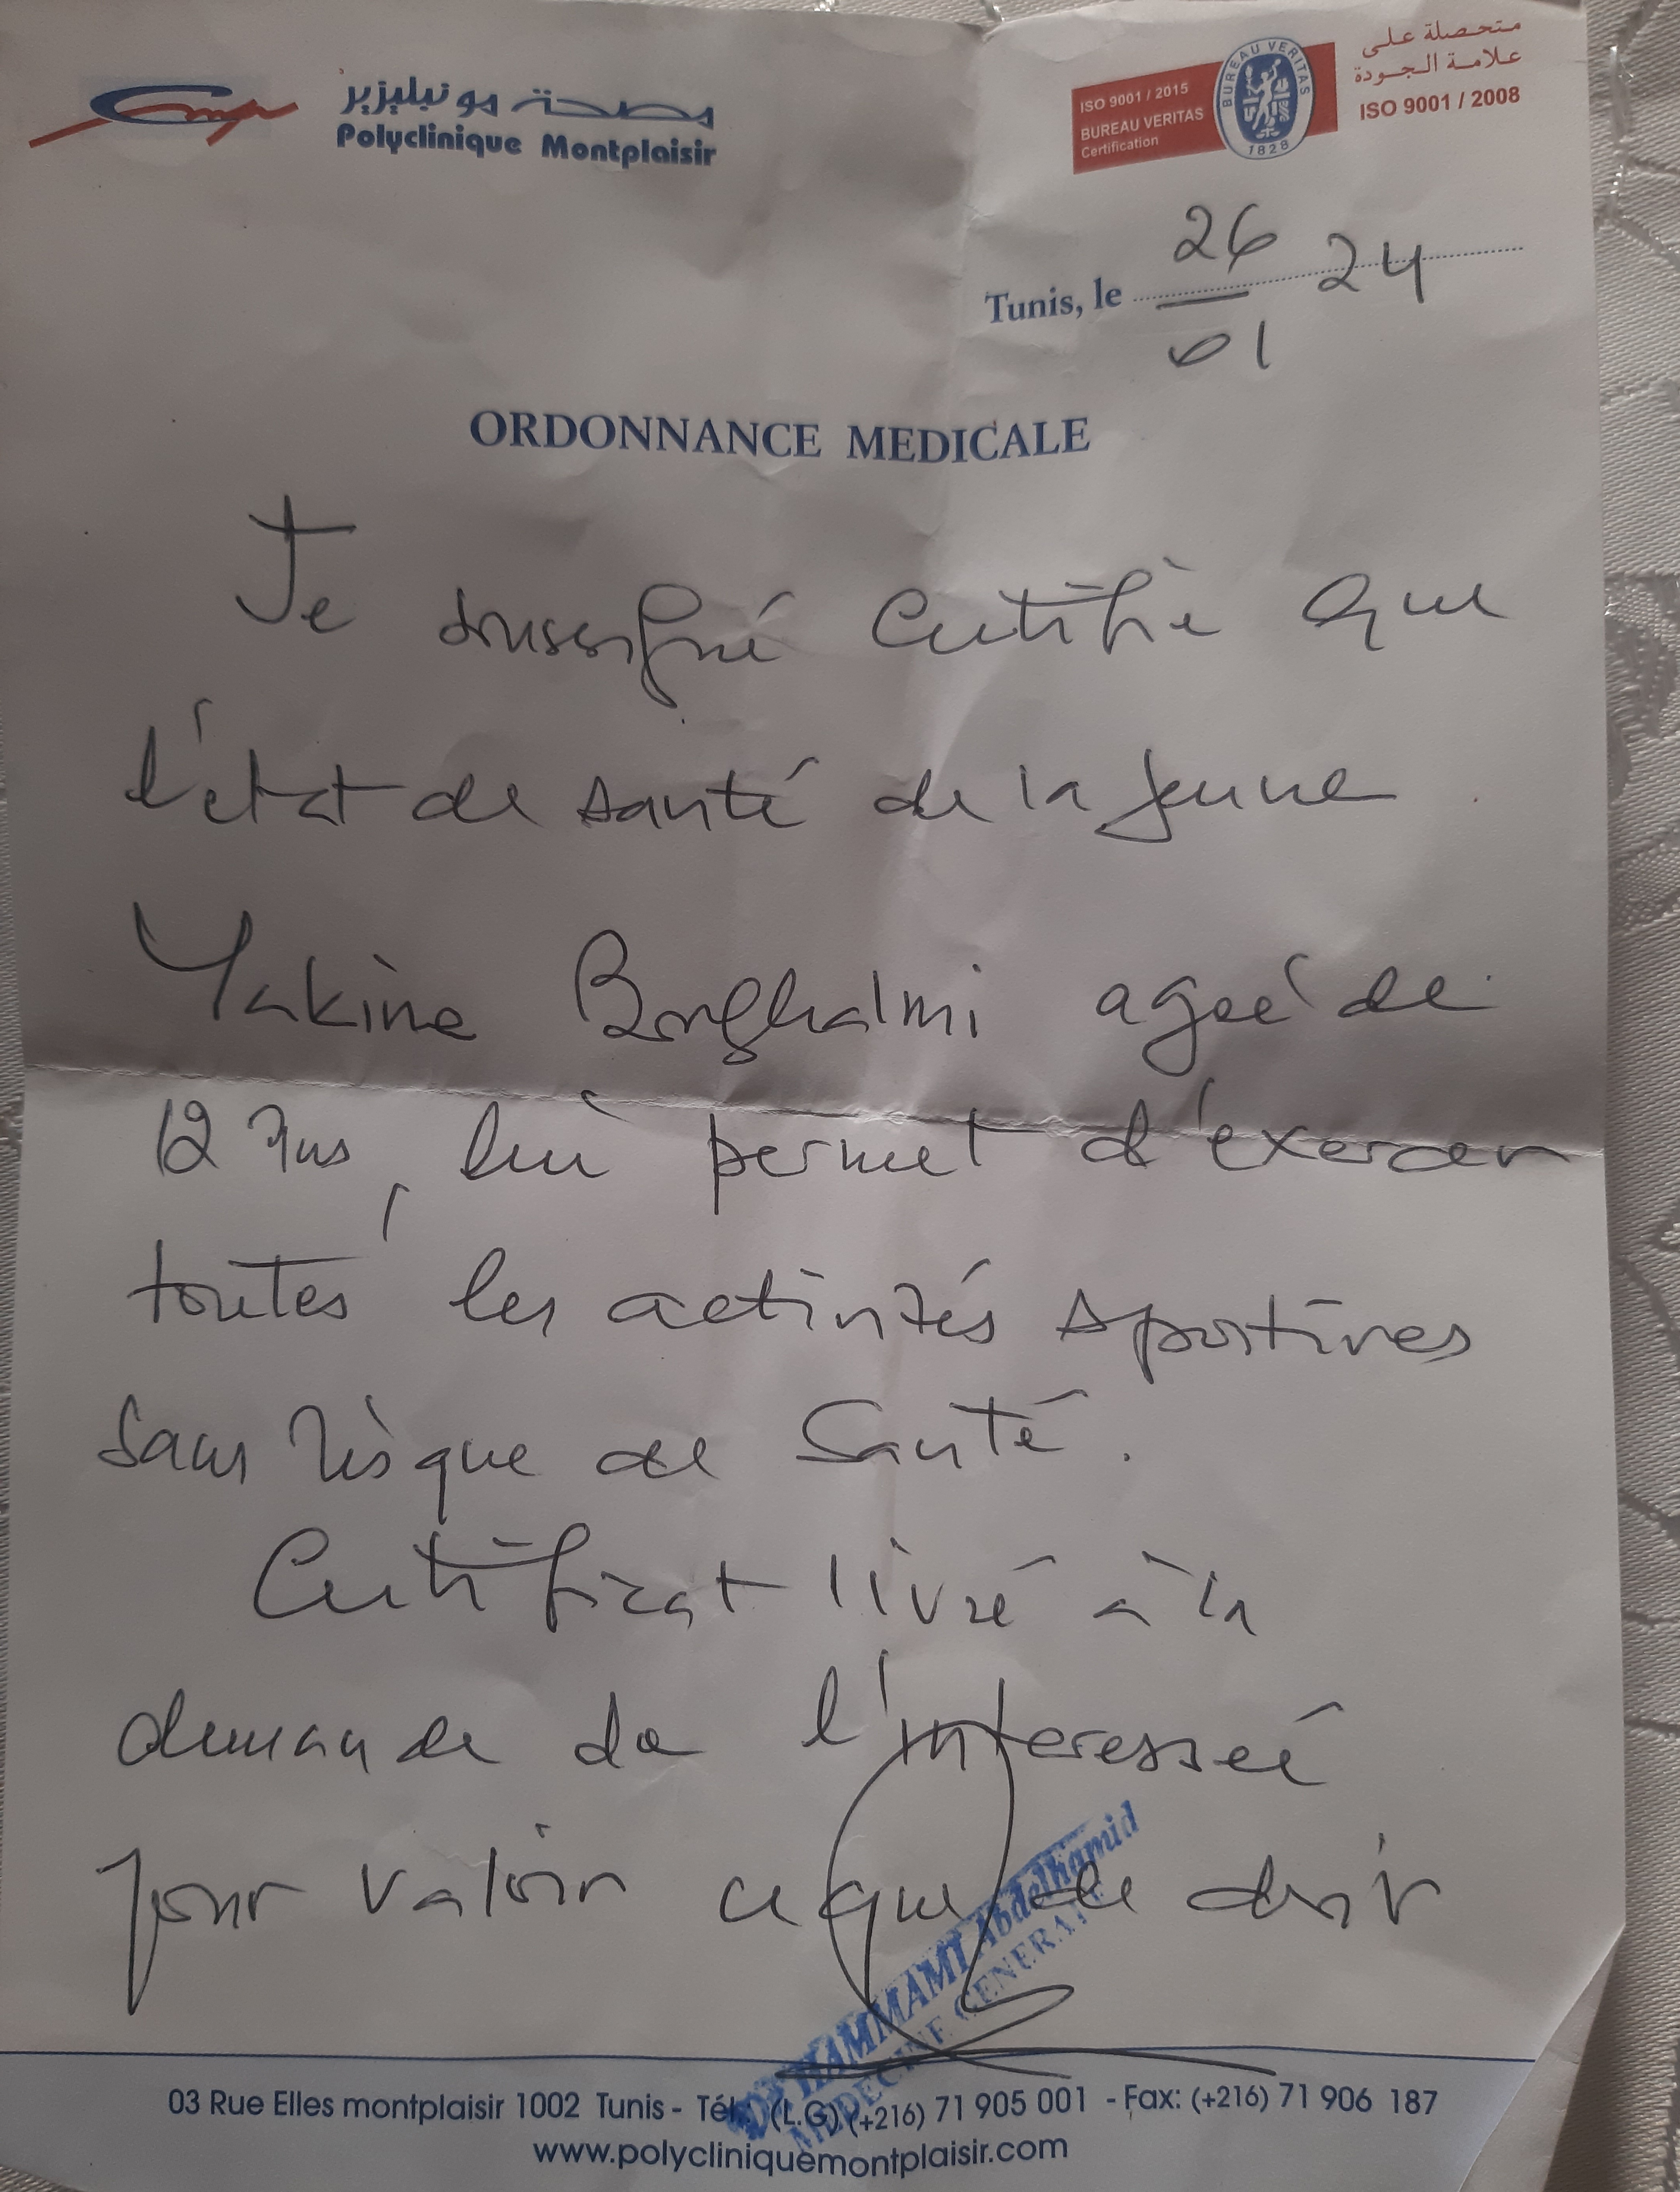 مصحة مونبليزير
Polyclinique Montplaisir
ISO 9001 / 2015
BUREAU VERITAS
Certification
BUREAU VERITAS
1828
متحصلة على
علامة الجودة
ISO 9001 / 2008
Tunis, le 26/01 24
ORDONNANCE MEDICALE
Je soussigné certifie que
l'état de santé de la jeune
Yakine Borghalmi ageé de
12 ans, lui permet d'exercer
toutes les activités sportives
sans risque de santé.
Certificat livré à la
demande de l'interesseé
pour valoir ce que de droit
DR HAMMAMI Abdelhamid
MEDECINE GENERALE
03 Rue Elles montplaisir 1002 Tunis - Tél.: (L.G) (+216) 71 905 001 - Fax: (+216) 71 906 187
www.polycliniquemontplaisir.com